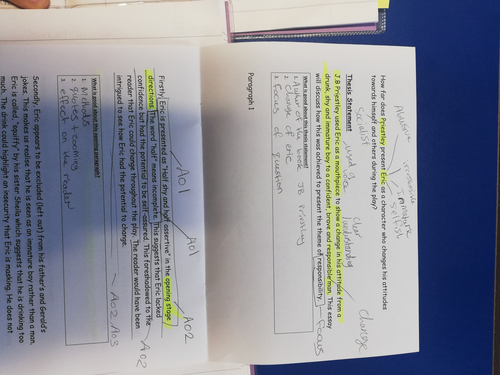 How far does Priestley present Eric as a character who changes his attitudes
towards himself and others during the play?
Abusive
irresponsible
immature
selfish
Socialist
Thesis Statement
used for
clear
understanding
change
J.B Priestley used Eric as a mouthpiece to show a change in his attitude from a
drunk, shy and immature boy to a confident, brave and responsible man. This essay
will discuss how this was achieved to present the theme of responsibility.
Focus
What is good about this thesis statement?
1. Author of the book JB Priestley
2. change of eric
3. Focus of question
Paragraph 1
AO1
AO1
AO2
Firstly Eric is presented as "half shy and half assertive" in the opening stage
directions. The word "half" means incomplete. This suggests that Eric lacked
confidence but had the potential to be self-assured. This foreshadowed to the
reader that Eric could change throughout the play. The reader would have been
intrigued to see how Eric had the potential to change.
AO2
AO2, AO3
What is good about this opening statement?
1.
2. quotes + zooming
3. effect on the reader
Secondly, Eric appears to be excluded (left out) from his father's and Gerald's
jokes. This makes us realise that he is seen as an immature boy rather than a man.
Eric is called "squiffy" by his sister Sheila which suggests that he is drinking too
much. The drink could highlight an insecurity that Eric is masking. He does not